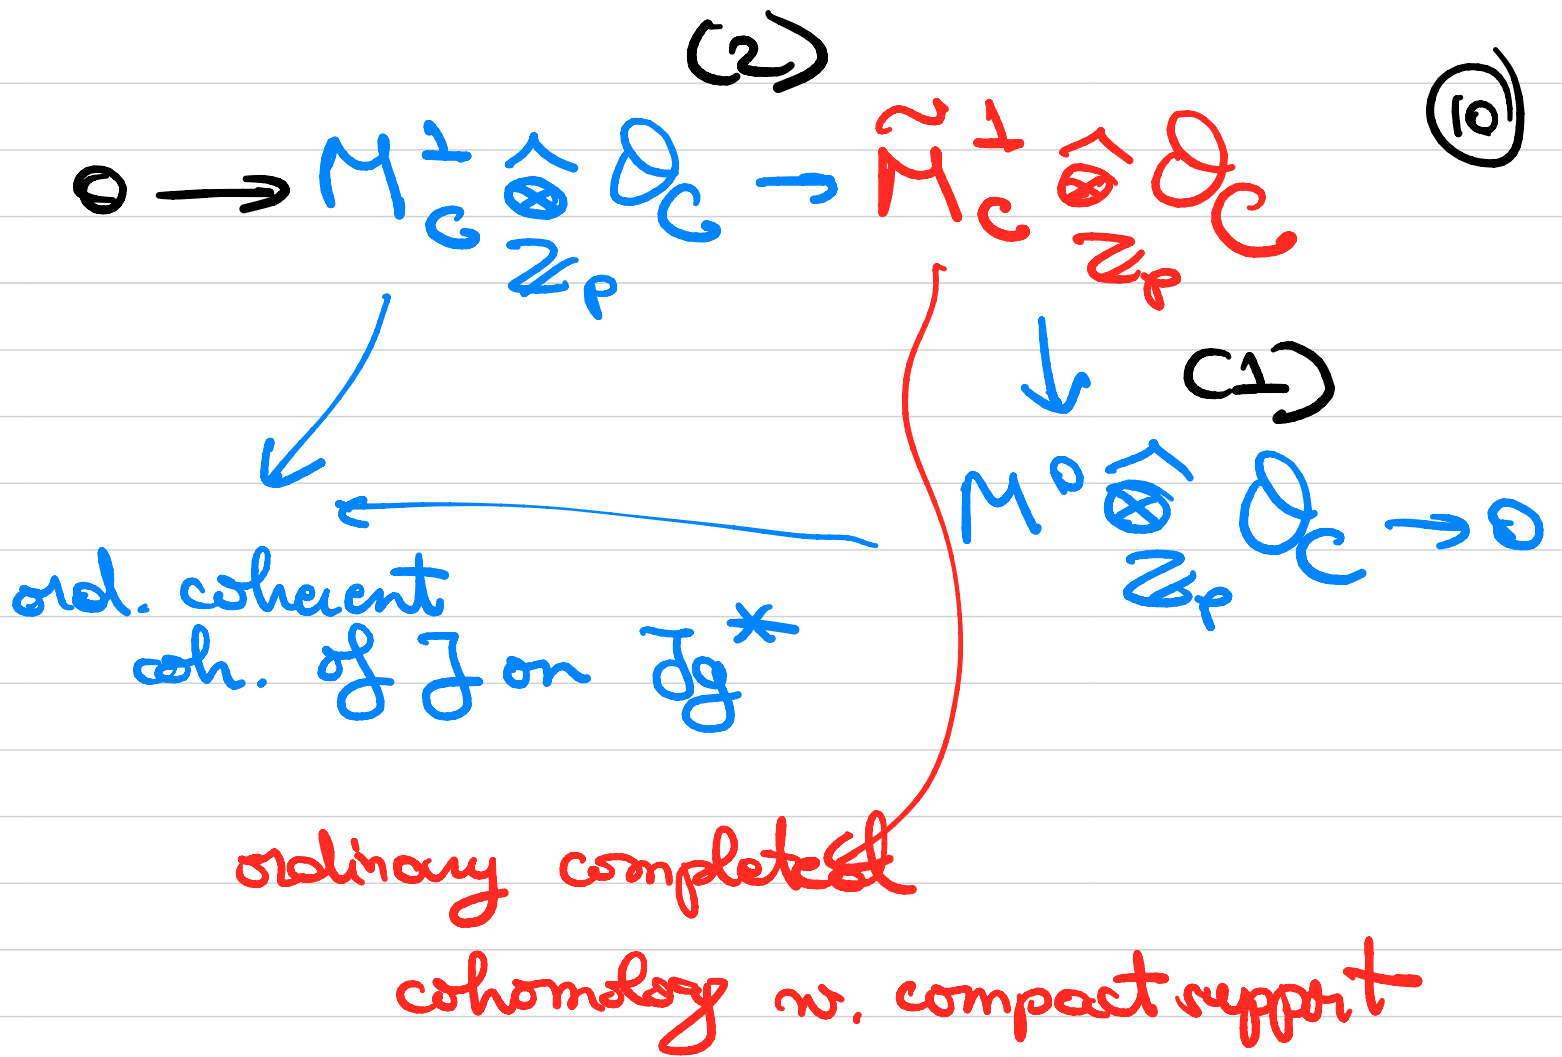 (2)
10
0 → M_c^1 ⊗̂_{ℤ_p} O_C → M̃_c^1 ⊗̂_{ℤ_p} O_C
(1)
↓
M^0 ⊗̂_{ℤ_p} O_C → 0
ord. coherent
coh. of J on Jg*
ordinary completed
cohomology w. compact support